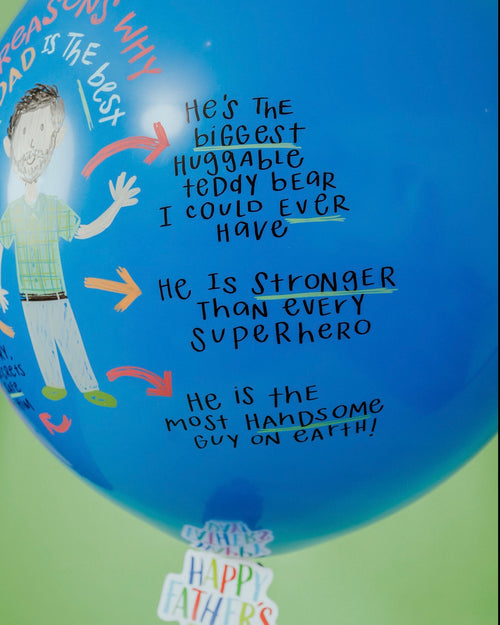 REASONS WHY
DAD IS THE best
HE'S THE
biGGEST
HUGGABLE
teDDy beAR
I COULD EVER
HAVE
HE IS StRONGER
THAN EVERY
SUPERHERO
HE is tHE
mOSt HANDSOME
GUY ON EARTH!
HAPPY
FATHER'S